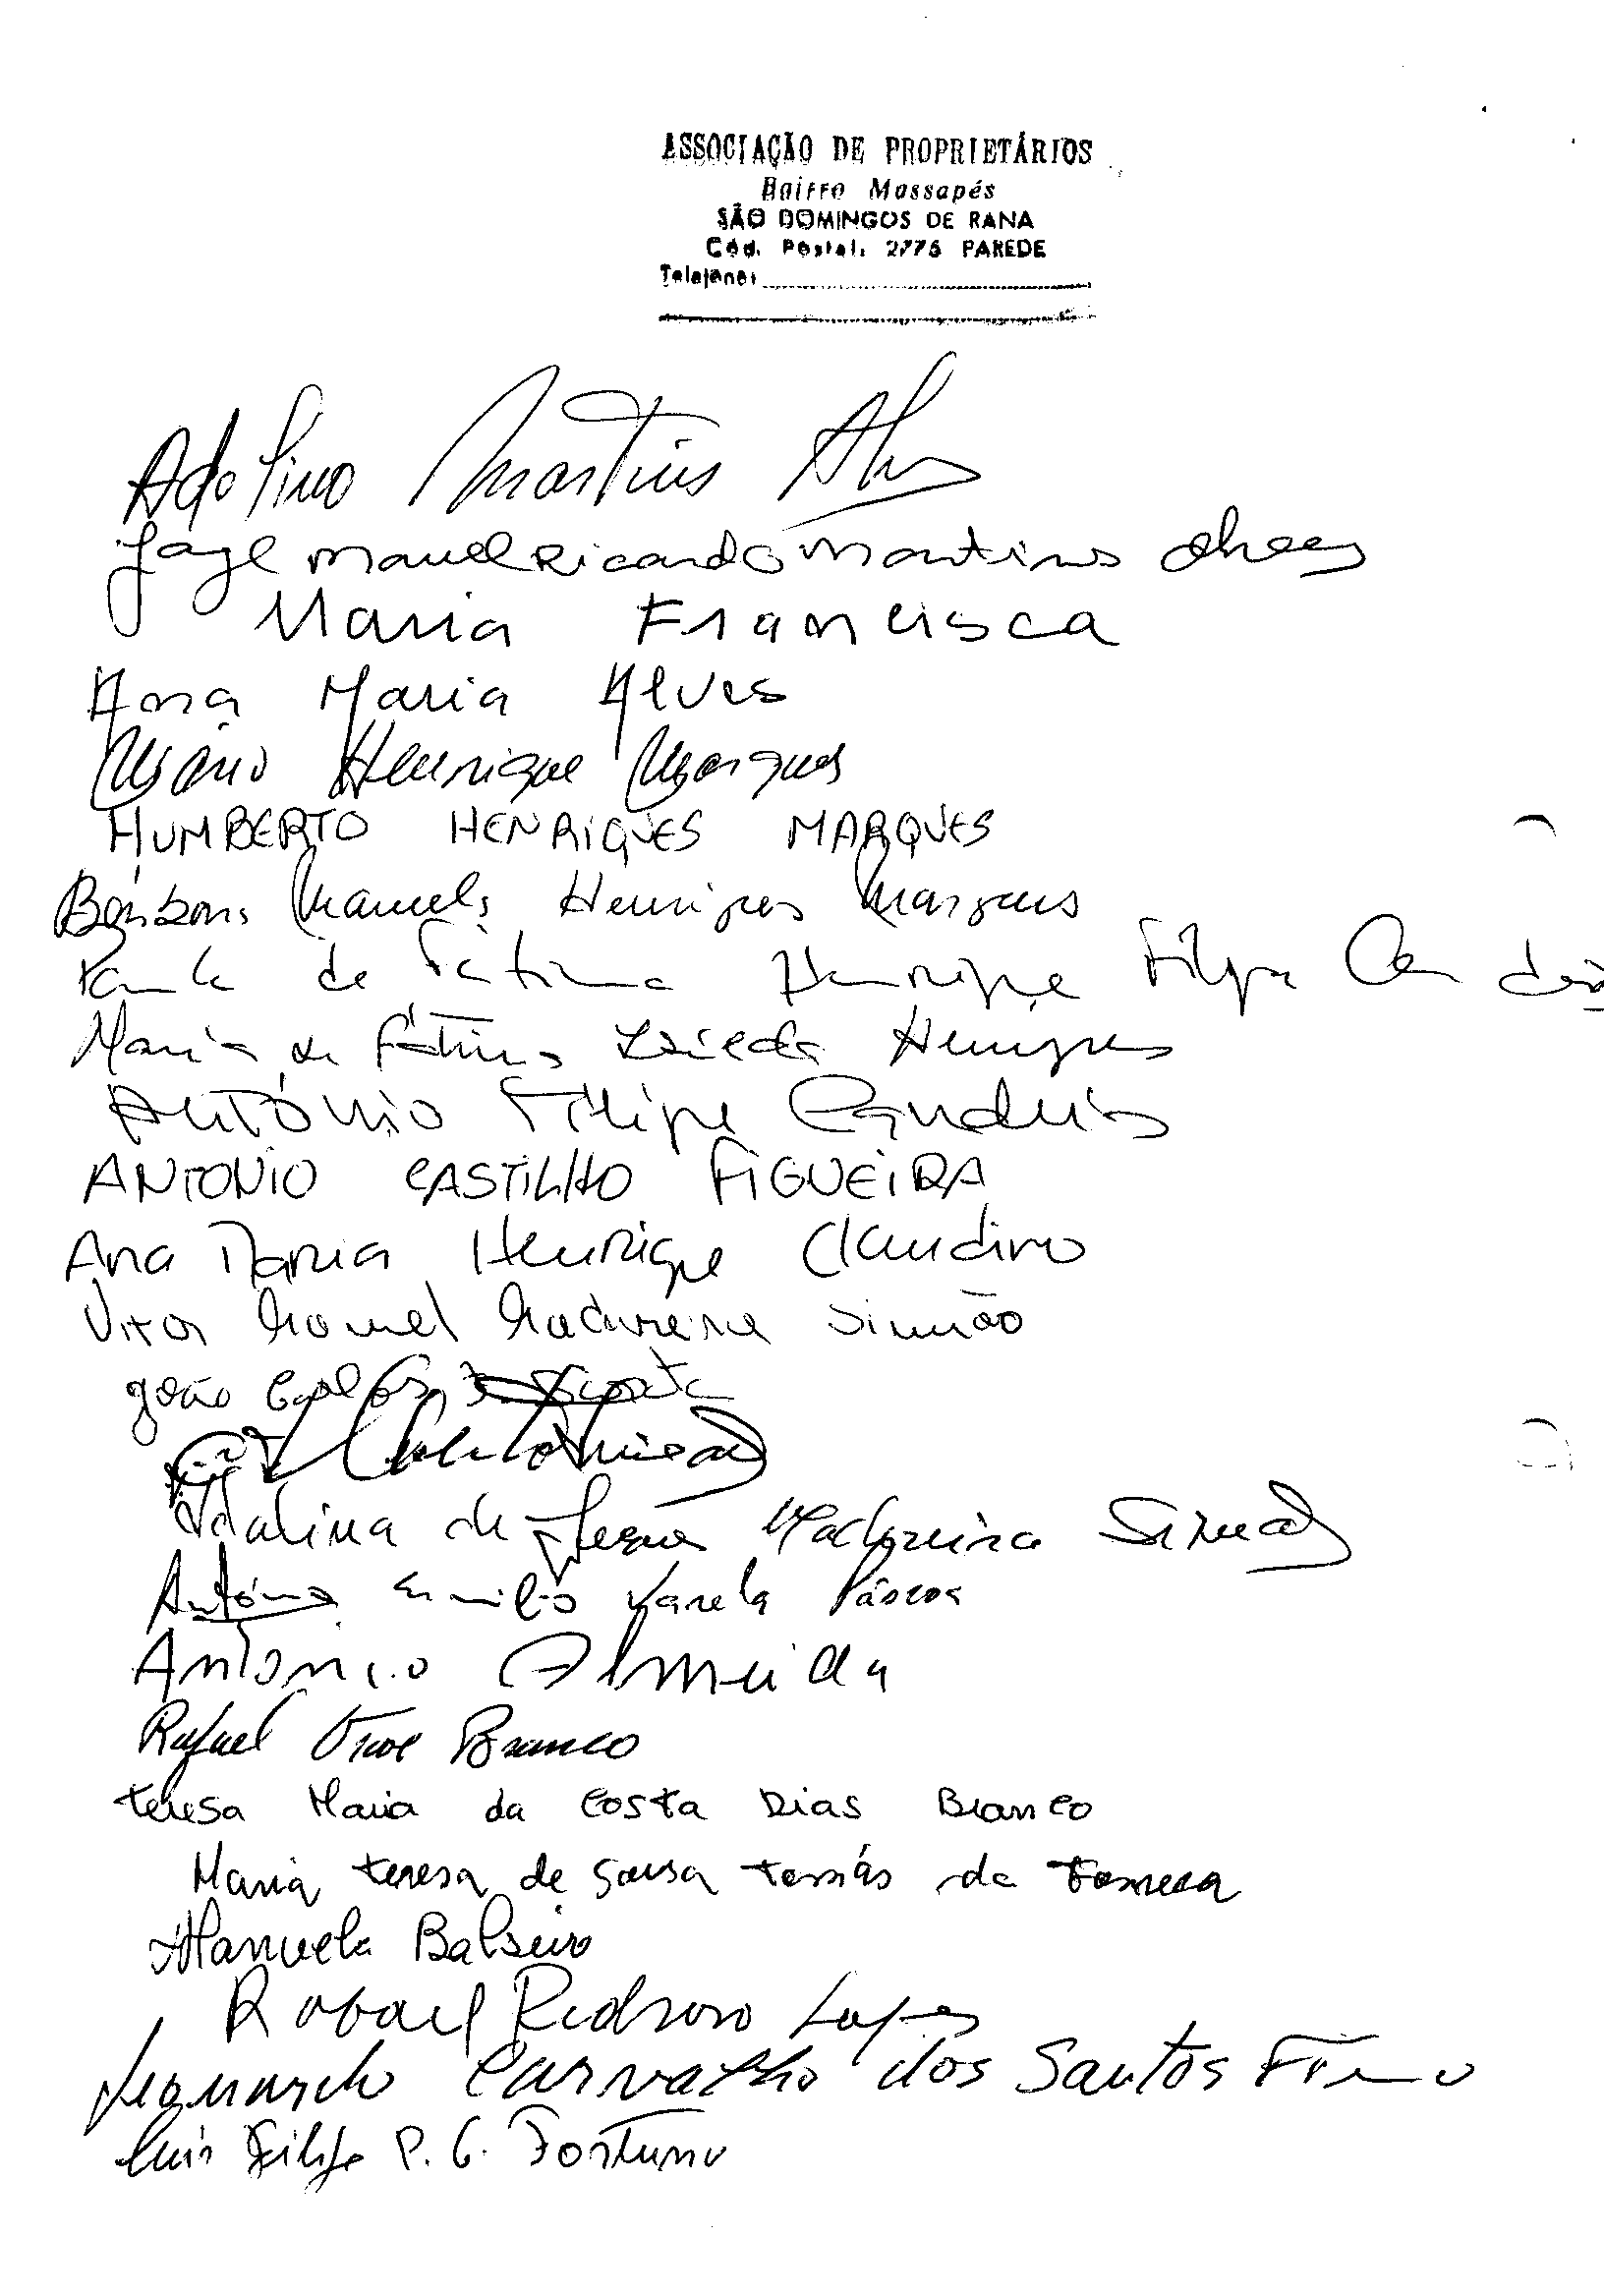 ASSOCIAÇÃO DE PROPRIETÁRIOS
Bairro Massapés
SÃO DOMINGOS DE RANA
Cód. Postal. 2775 PAREDE
Telefone:
Martins
Manuel Ricardo Martins
Maria Francisca
Ana Maria Alves
Mário Henrique Marques
HUMBERTO HENRIQUES MARQUES
Manuela Henriques Marques
de Fátima Henrique Filipe
Maria de Fátima Henriques
António Filipe
ANTONIO CASTILHO FIGUEIRA
Ana Maria Henrique Claudino
Vitor Manuel Madureira Simão
João Carlos
Idalina de Jesus Madureira Simão
António Emilio Varela Páscoa
António Almeida
Rafael Branco
Teresa Maria da Costa Dias Branco
Maria Teresa de Sousa Tomás da Fonseca
Manuela Balseiro
Rafael Pedroso Lopes
Leonardo Carvalho dos Santos Firmo
Luis Filipe P. G. Fortuna